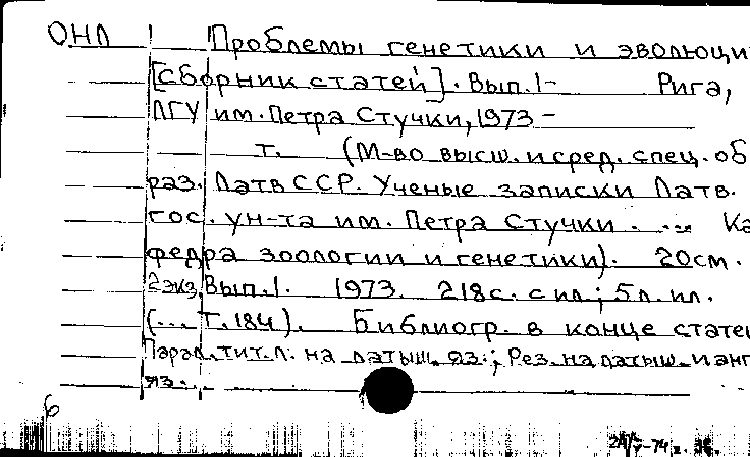 ОНЛ Проблемы генетики и эволюци
[Сборник статей]. Вып.1- Рига,
ЛГУ им. Петра Стучки, 1973 -
т. (М-во высш. и сред. спец. об
раз. Латв ССР. Ученые записки Латв.
гос. ун-та им. Петра Стучки ... Ка
федра зоологии и генетики). 20см.
2экз. Вып.1. 1973. 218с. с ил.; 5л. ил.
(... Т.184). Библиогр. в конце статей
Парал. тит. л. на латыш. яз.; Рез. на латыш. и анг
яз.
6